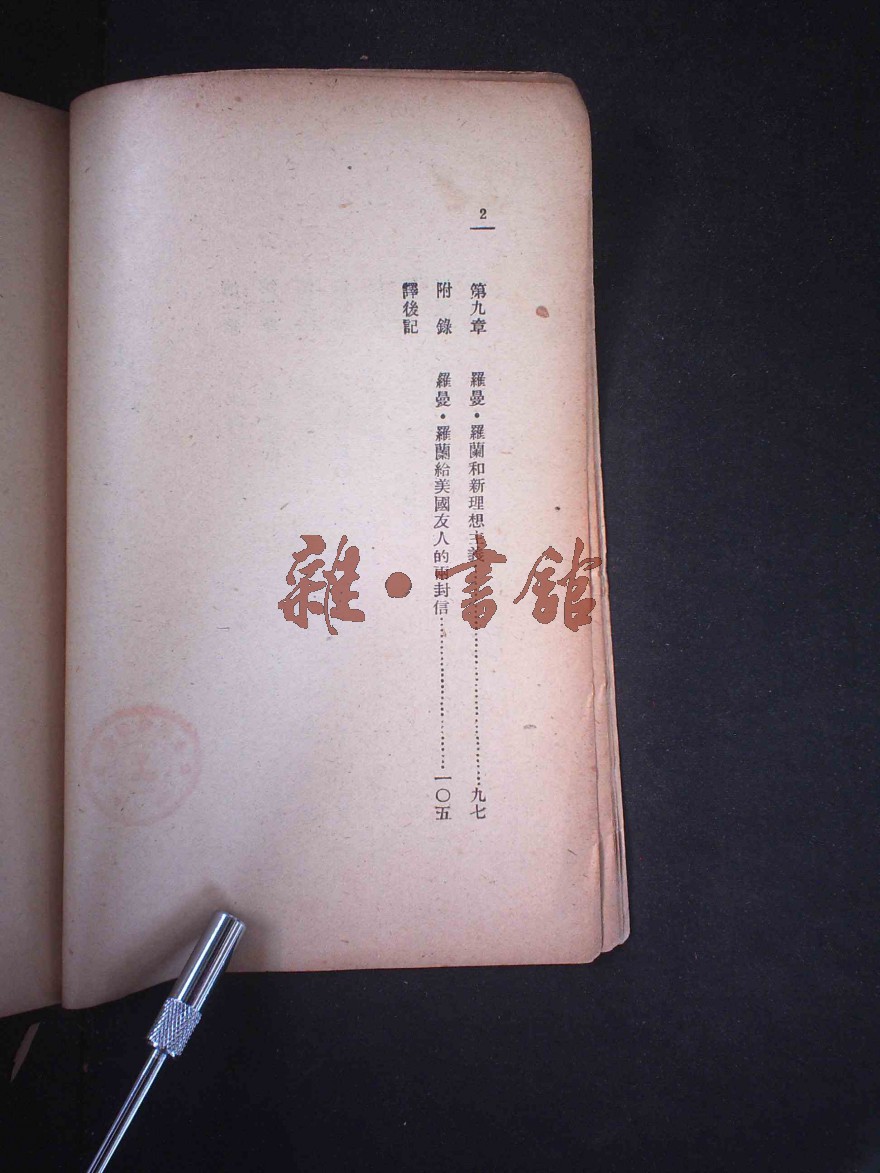 2
第九章 羅曼·羅蘭和新理想主義……九七
附 錄 羅曼·羅蘭給美國友人的兩封信……一〇五
譯後記
雜·書館